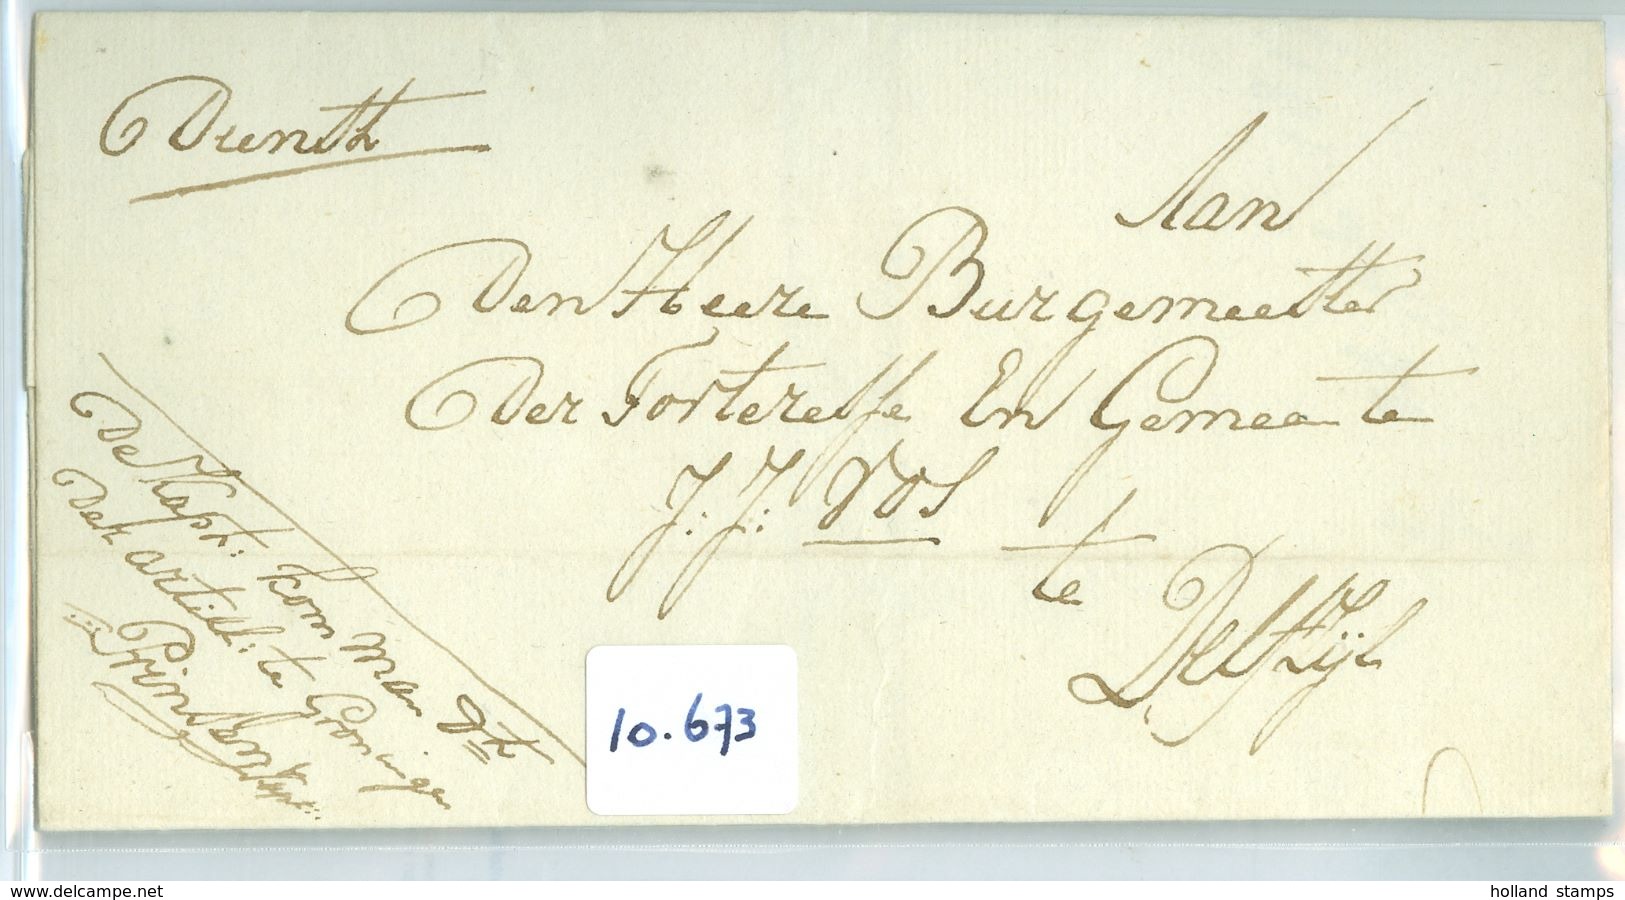 Dienst
Aan
Den Heere Burgemeester
Der Fortresse En Gemeente
J: J: VOS
te
Delfzijl
De Kapt: kommandt
Der artiel: te Groningen
Kapt:
10.673
www.delcampe.net
holland stamps